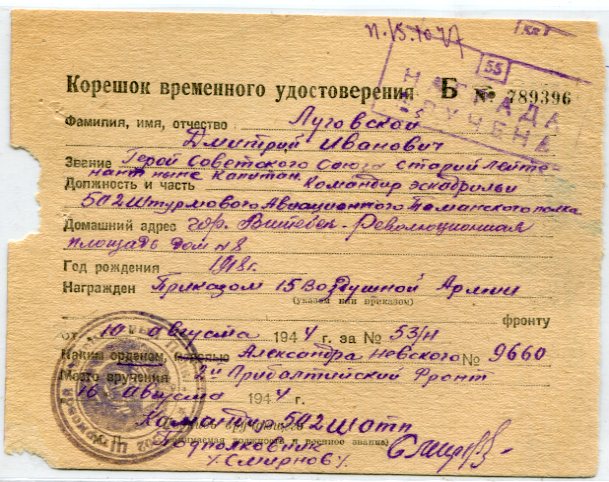 п. 15.10.47
55
НАГРАДА
ВРУЧЕНА
Корешок временного удостоверения Б № 789396
Фамилия, имя, отчество Луговской
Дмитрий Иванович
Звание Герой Советского Союза старий лейте-
нант ныне капитан.
Должность и часть Командир эскадрильи
502 Штурмового Авиационного Таманского полка
Домашний адрес гор. Витебск - Революционная
площадь дом N 8
Год рождения 1918 г.
Награжден Приказом 15 Воздушной Армии
(указом или приказом)
фронту
от 10 августа 1944 г. за № 53/н
Каким орденом, медалью Александра Невского № 9660
Место вручения 2й Прибалтийский Фронт
16 августа 1944 г.
Командир 502 шатп
(подписавшая должность и военное звание)
Подполковник
/Смирнов/.